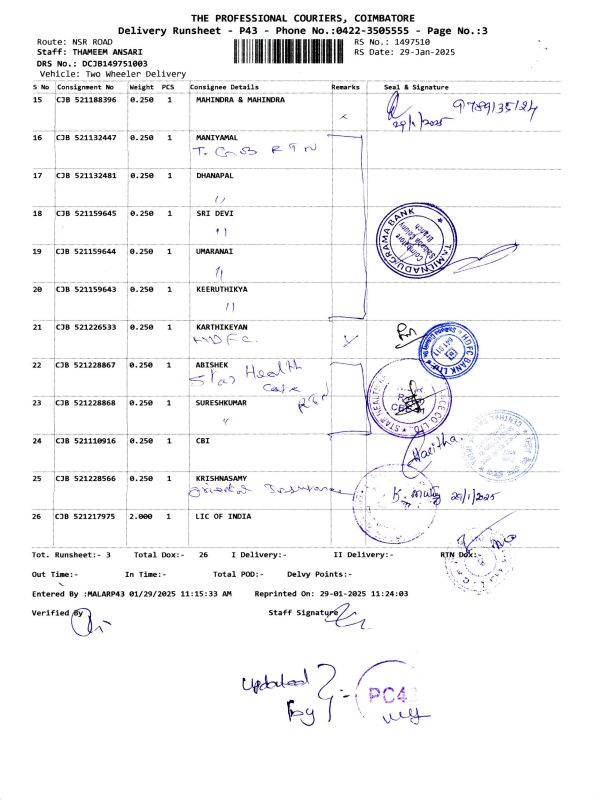 THE PROFESSIONAL COURIERS, COIMBATORE
Delivery Runsheet - P43 - Phone No.:0422-3505555 - Page No.:3
Route: NSR ROAD RS No.: 1497510
Staff: THAMEEM ANSARI RS Date: 29-Jan-2025
DRS No.: DCJB149751003
Vehicle: Two Wheeler Delivery
S No Consignment No Weight PCS Consignee Details Remarks Seal & Signature
15 CJB 521188396 0.250 1 MAHINDRA & MAHINDRA
29/1/2025
16 CJB 521132447 0.250 1 MANIYAMAL
RTN
17 CJB 521132481 0.250 1 DHANAPAL
"
18 CJB 521159645 0.250 1 SRI DEVI
"
TAMILNADU GRAMA BANK
Coimbatore
Branch
19 CJB 521159644 0.250 1 UMARANAI
"
20 CJB 521159643 0.250 1 KEERUTHIKYA
"
21 CJB 521226533 0.250 1 KARTHIKEYAN
HDFC.
HDFC BANK LTD
22 CJB 521228867 0.250 1 ABISHEK
Star Health
Care
23 CJB 521228868 0.250 1 SURESHKUMAR
RTN
"
STAR HEALTH
CO. LTD.
24 CJB 521110916 0.250 1 CBI
Haritha
25 CJB 521228566 0.250 1 KRISHNASAMY
Oriental Insurance
29/1/2025
26 CJB 521217975 2.000 1 LIC OF INDIA
Tot. Runsheet:- 3 Total Dox:- 26 I Delivery:- II Delivery:- RTN Dox:-
Out Time:- In Time:- Total POD:- Delvy Points:-
Entered By :MALARP43 01/29/2025 11:15:33 AM Reprinted On: 29-01-2025 11:24:03
Verified By Staff Signature
Updated
by
PC43